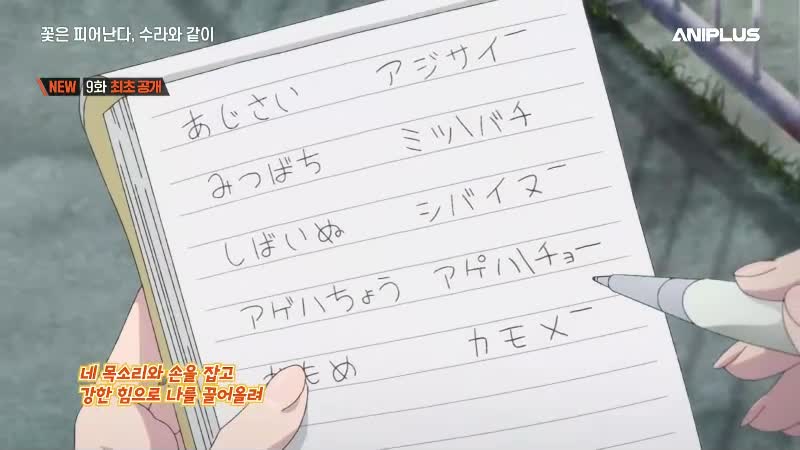 꽃은 피어난다, 수라와 같이
ANIPLUS
NEW 9화 최초 공개
あじさい アジサイー
みつばち ミツ\バチ
しばいぬ シバイヌー
アゲハちょう アゲハ\チョー
かもめ カモメー
네 목소리와 손을 잡고
강한 힘으로 나를 끌어올려